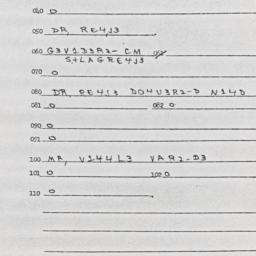 040 0
050 DR, RE4J3
060 G3V1D3R2-CM
S,+LAGRE4J3
070 0
080 DR, RE4J3 DO4V3R2-D N14D
081 0 082 0
090 0
091 0
100 MR, V144L3 VAR2-D3
101 0 102 0
110 0